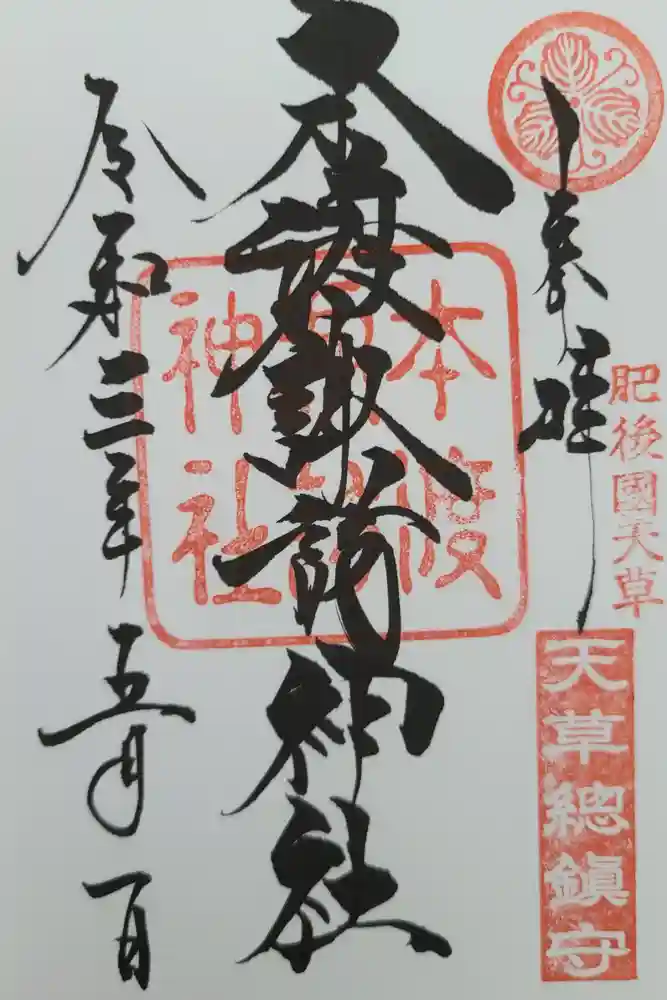 奉拝
肥後國天草
天草總鎮守
本渡諏訪神社
本渡諏訪神社
令和三年五月一日